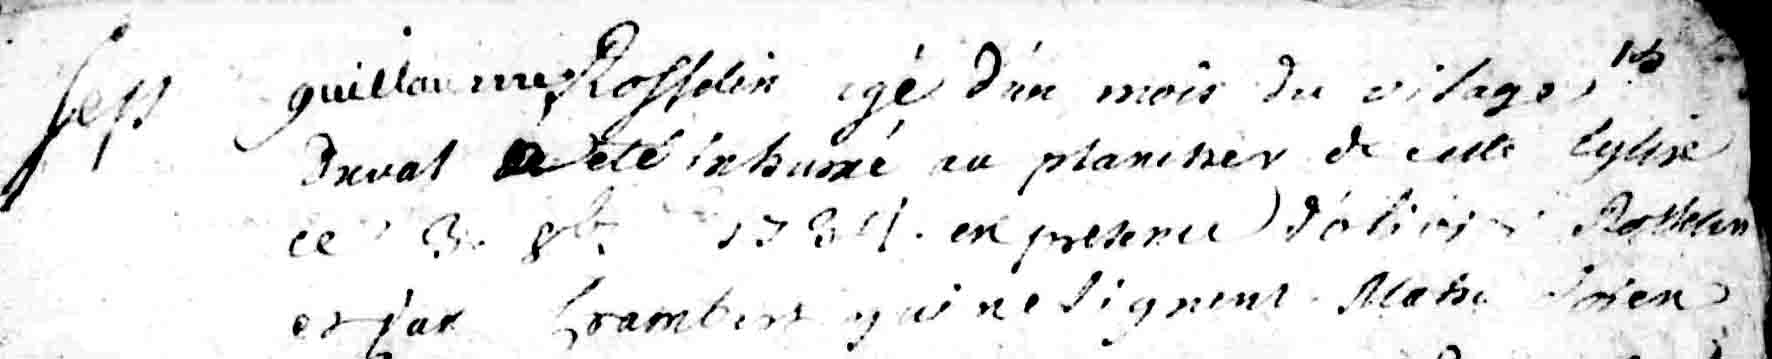 Sep guillaume Rosselin agé d'un mois du vilage
Duval a été inhumé au plancher de cette Eglise
ce 3. 8bre 1734. en presence d'olivier Rosselin
et jan qui ne signent